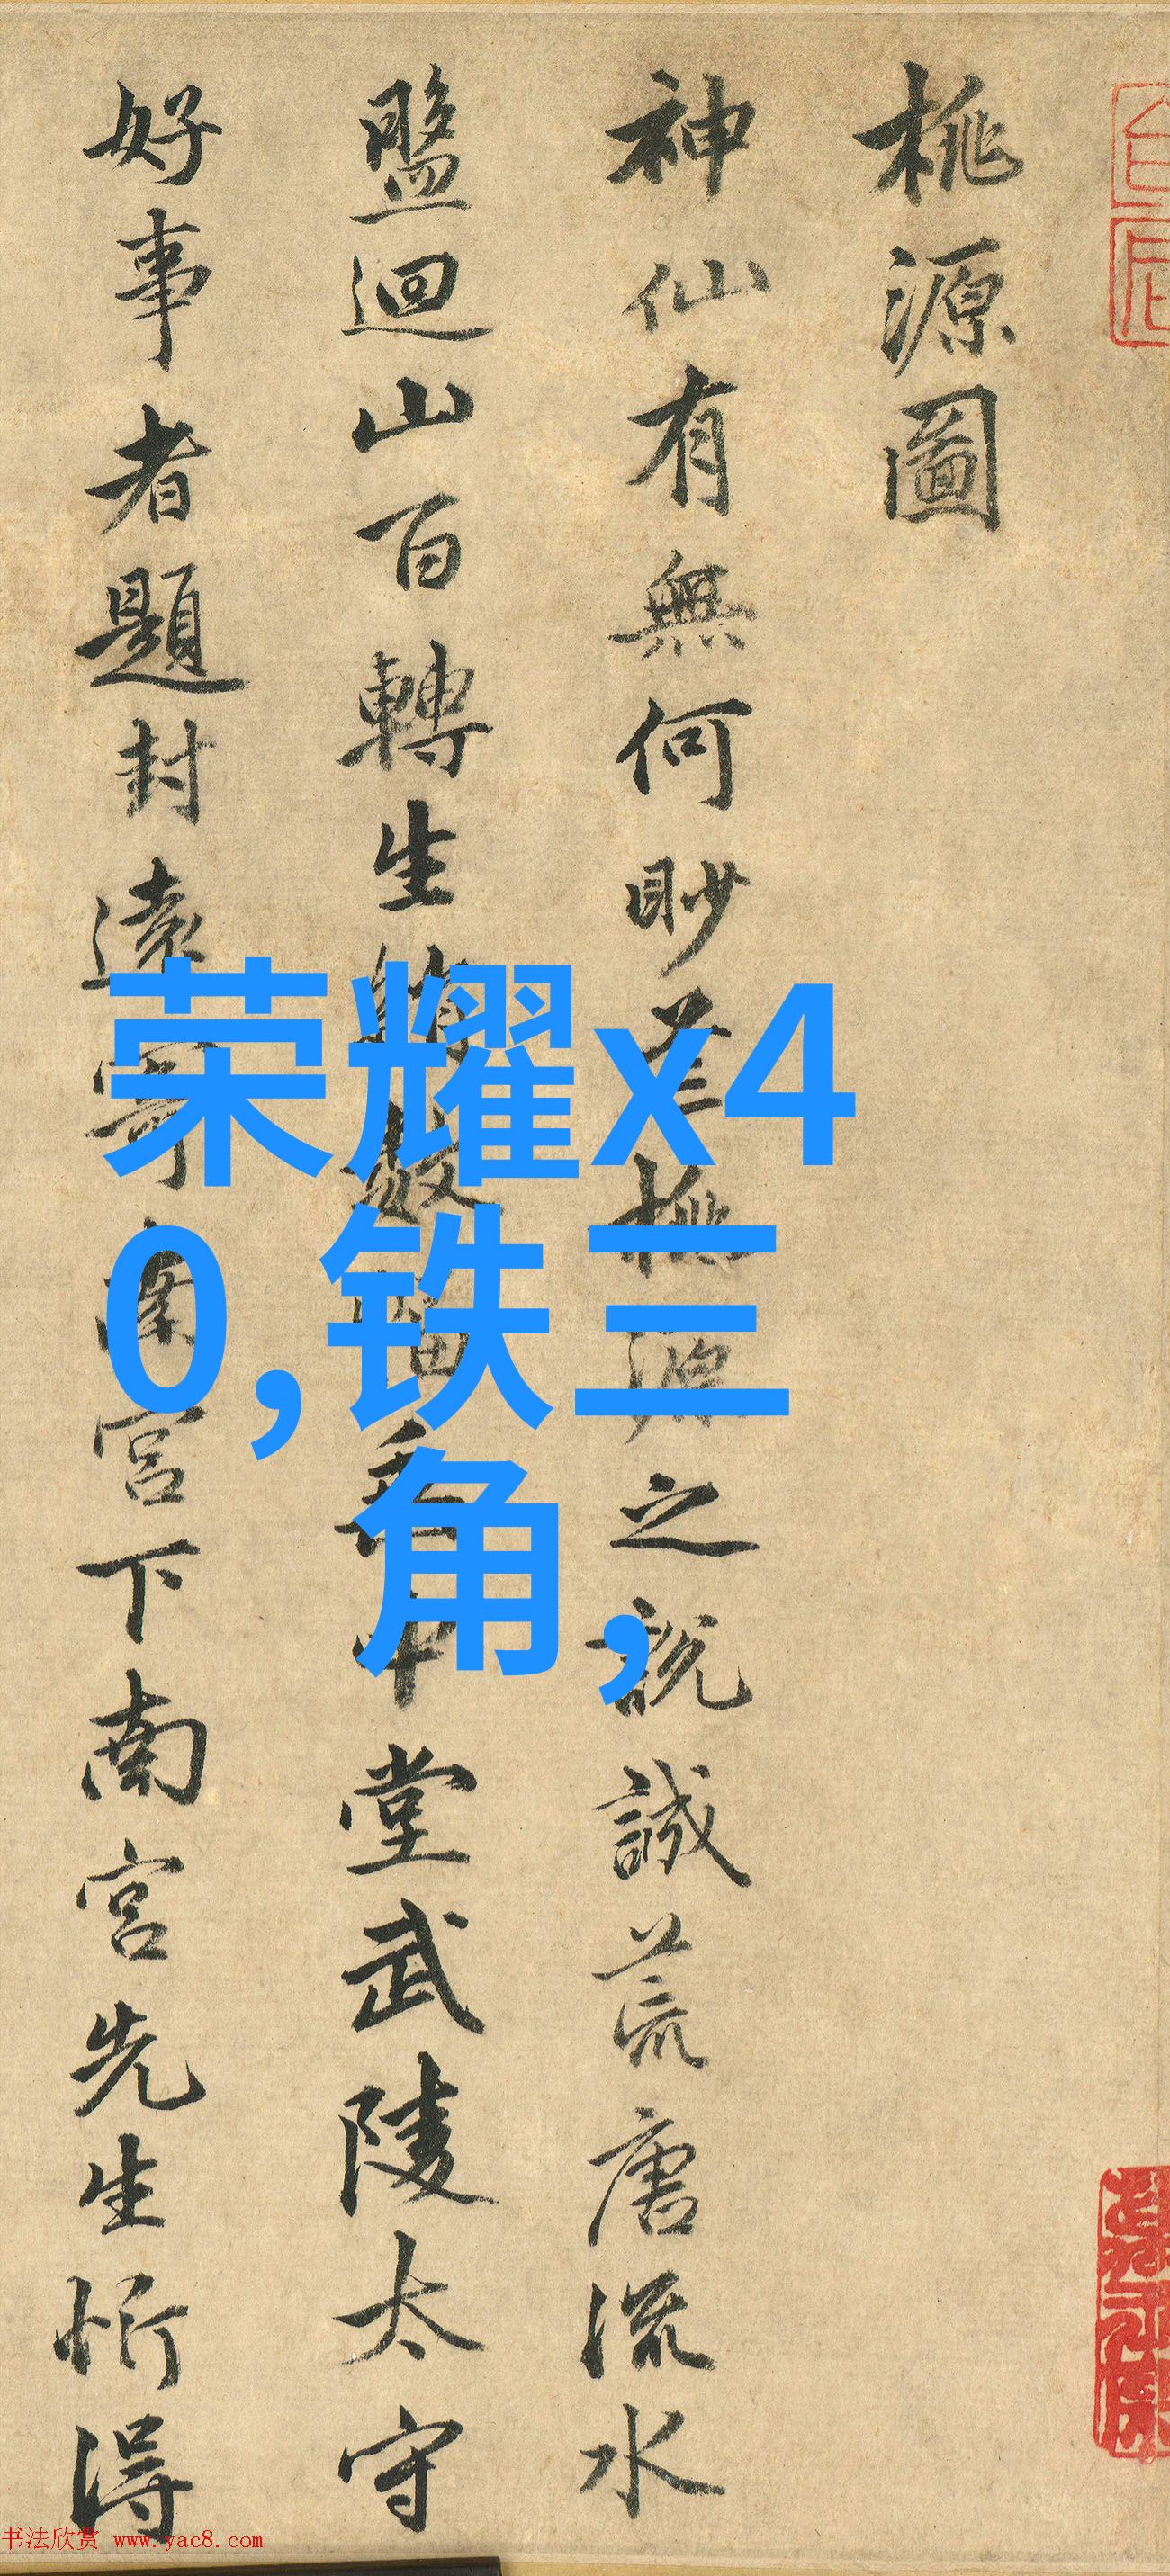 桃源圖
神仙有無何眇芒桃源之說誠荒唐流水
盤迴山百轉生綃數幅垂中堂武陵太守
好事者題封遠寄南宮下南宮先生忻得
荣耀x4
0,铁三
角,
书法欣赏 www.yac8.com